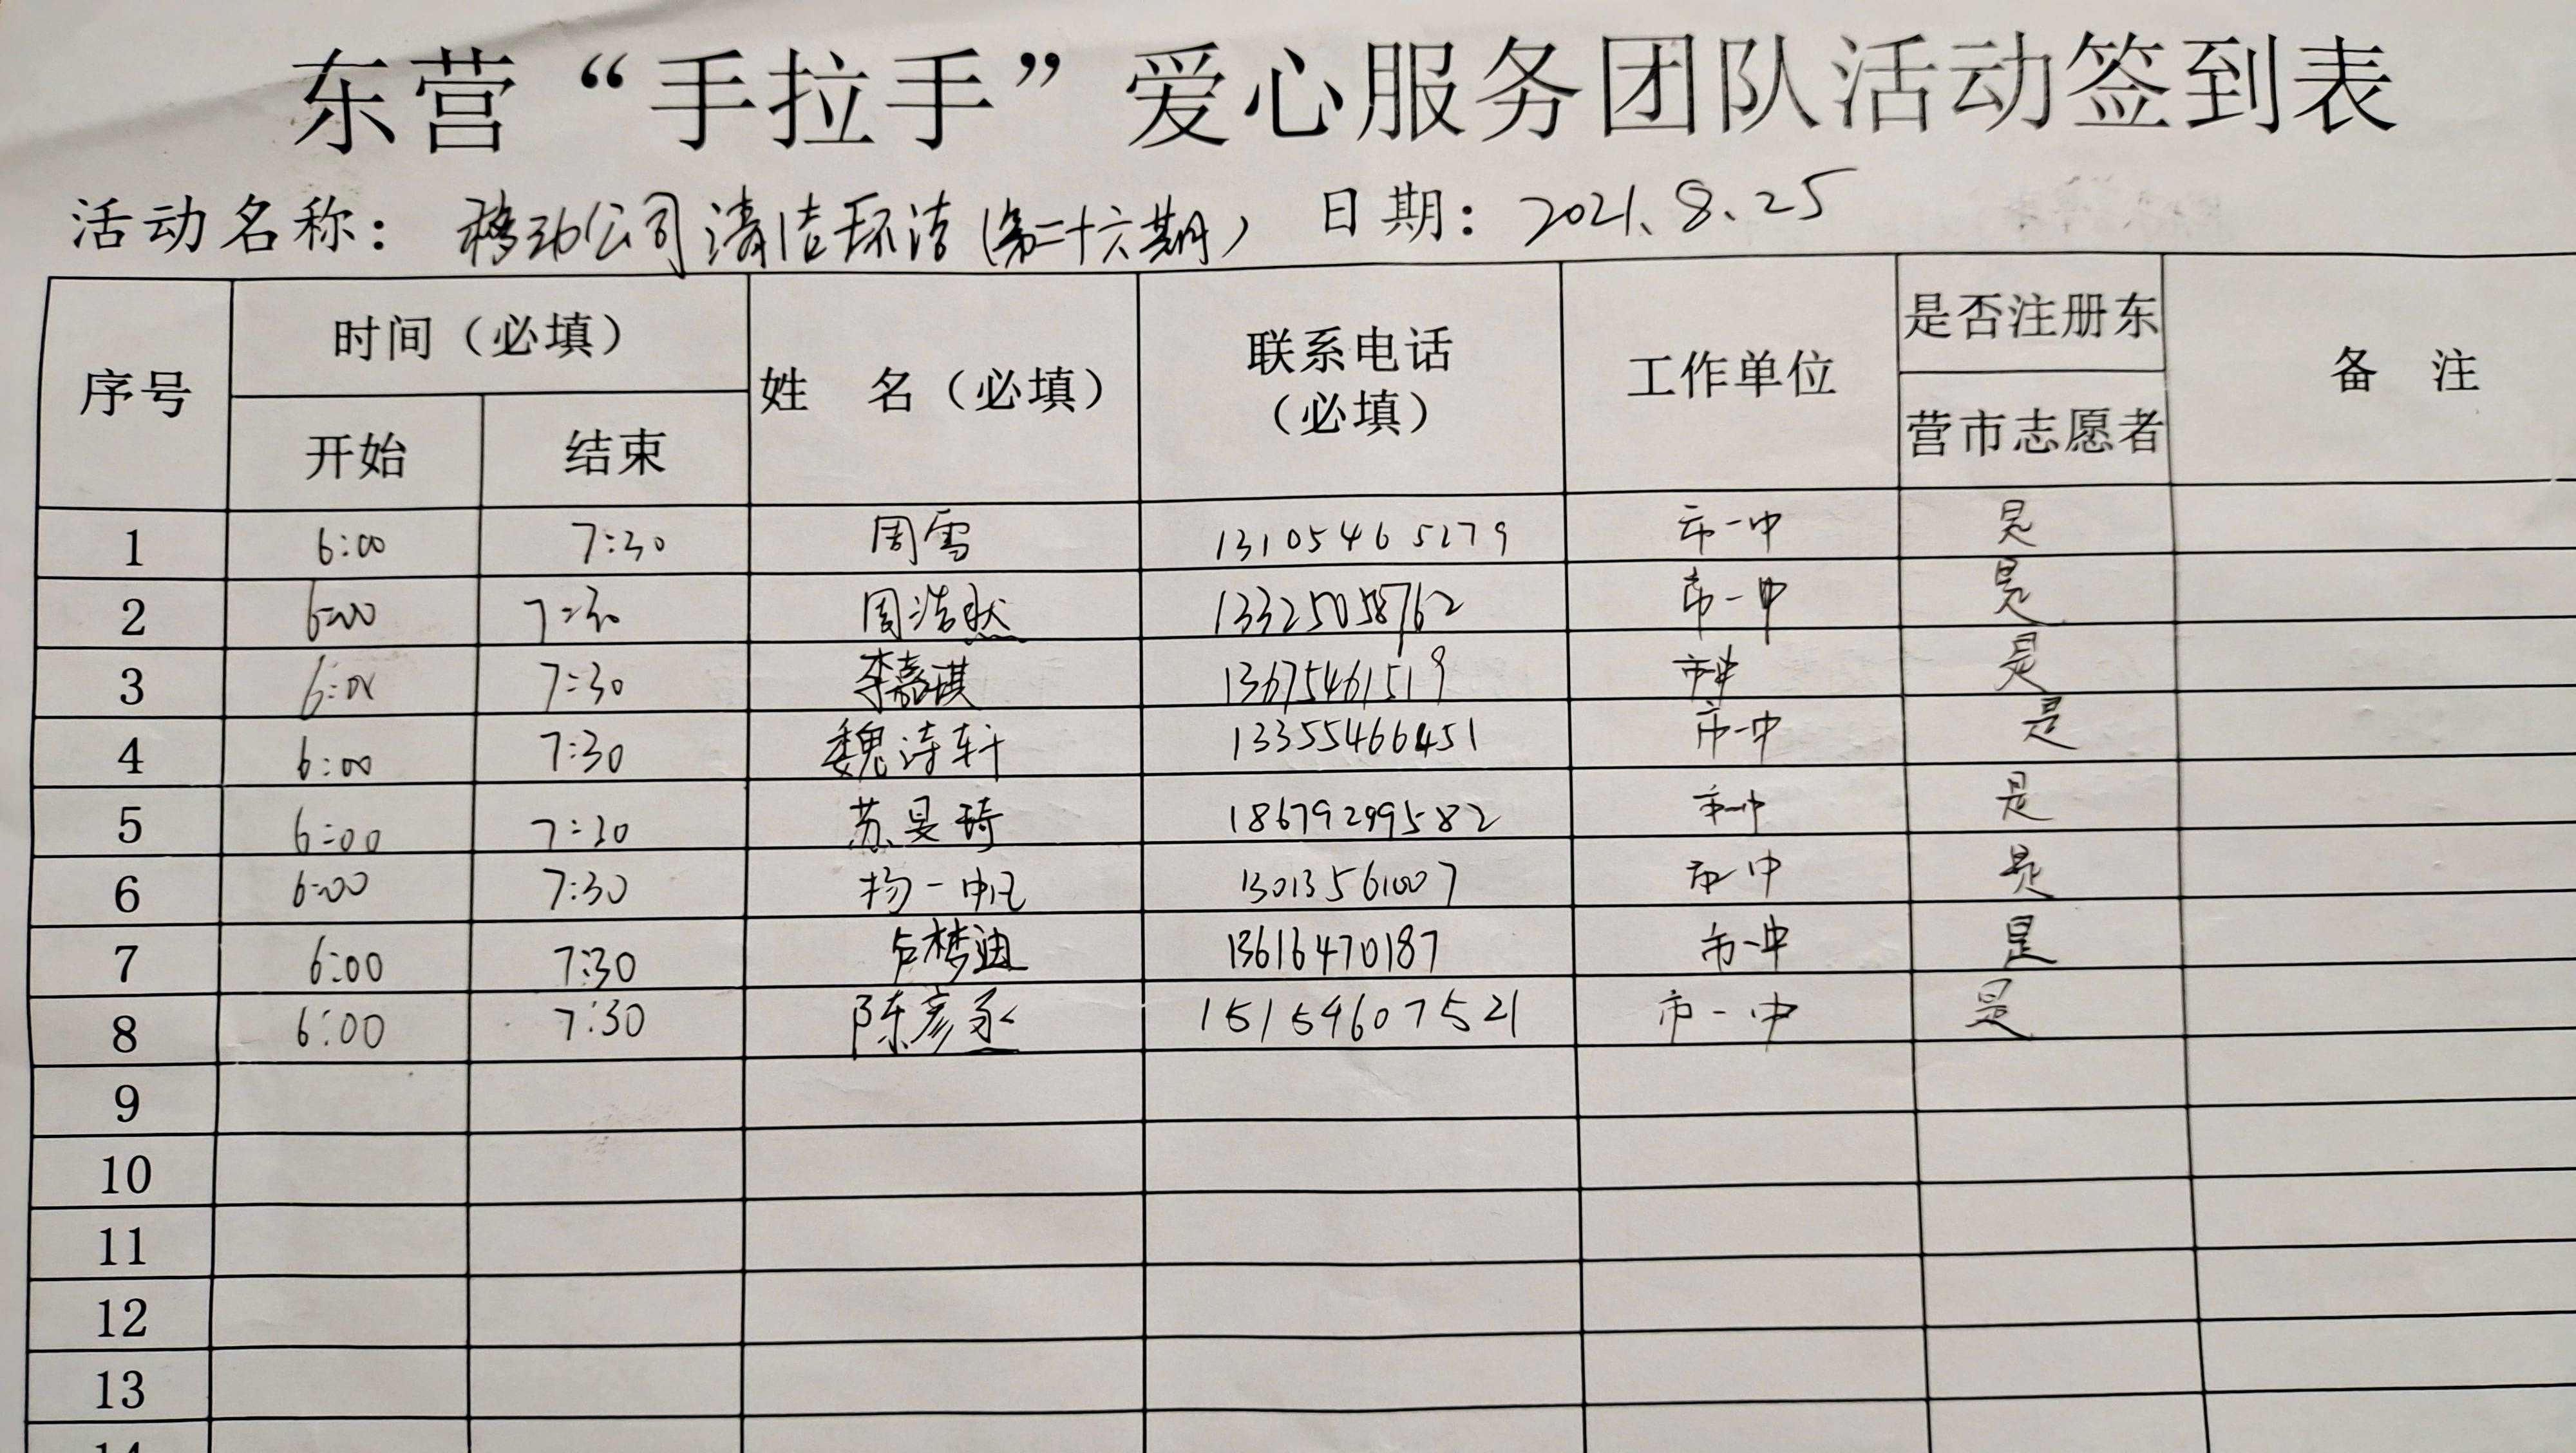 东营“手拉手”爱心服务团队活动签到表
活动名称：移动公司清洁环洁（第二十六期） 日期：2021.8.25
序号 时间（必填） 姓 名（必填） 联系电话（必填） 工作单位 是否注册东营市志愿者 备 注
开始 结束
1 6:00 7:30 周雪 13105465279 市一中 是
2 6:00 7:30 周浩然 13325058762 市一中 是
3 6:00 7:30 李嘉琪 13675461519 市一中 是
4 6:00 7:30 魏诗轩 13355466451 市一中 是
5 6:00 7:30 苏旻琦 18679299582 市一中 是
6 6:00 7:30 杨一帆 13013561007 市一中 是
7 6:00 7:30 卢梦迪 13616470187 市一中 是
8 6:00 7:30 陈彦丞 15154607521 市一中 是
9
10
11
12
13
14